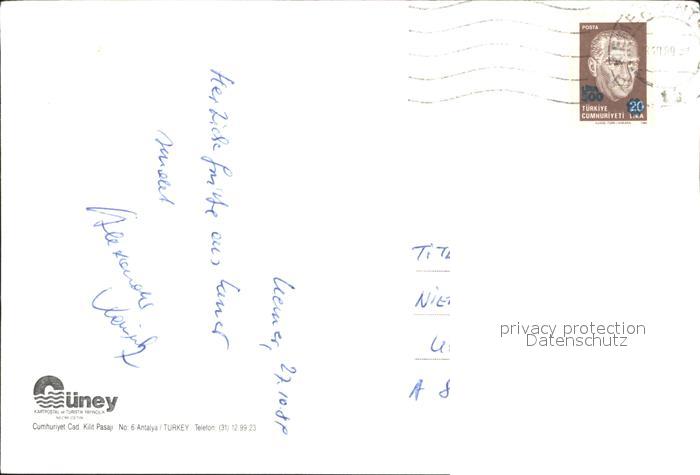 Kemer, 27.10.89
Herzliche Grüße aus Kemer
sendet
Alexander
TIT
NIE
U
A 8
POSTA
500
20
TÜRKİYE
CUMHURİYETİ LİRA
privacy protection
Datenschutz
Güney
KARTPOSTAL ve TURİSTİK YAYINCILIK
Cumhuriyet Cad. Kilit Pasajı No: 6 Antalya / TURKEY Telefon: (31) 12 99 23